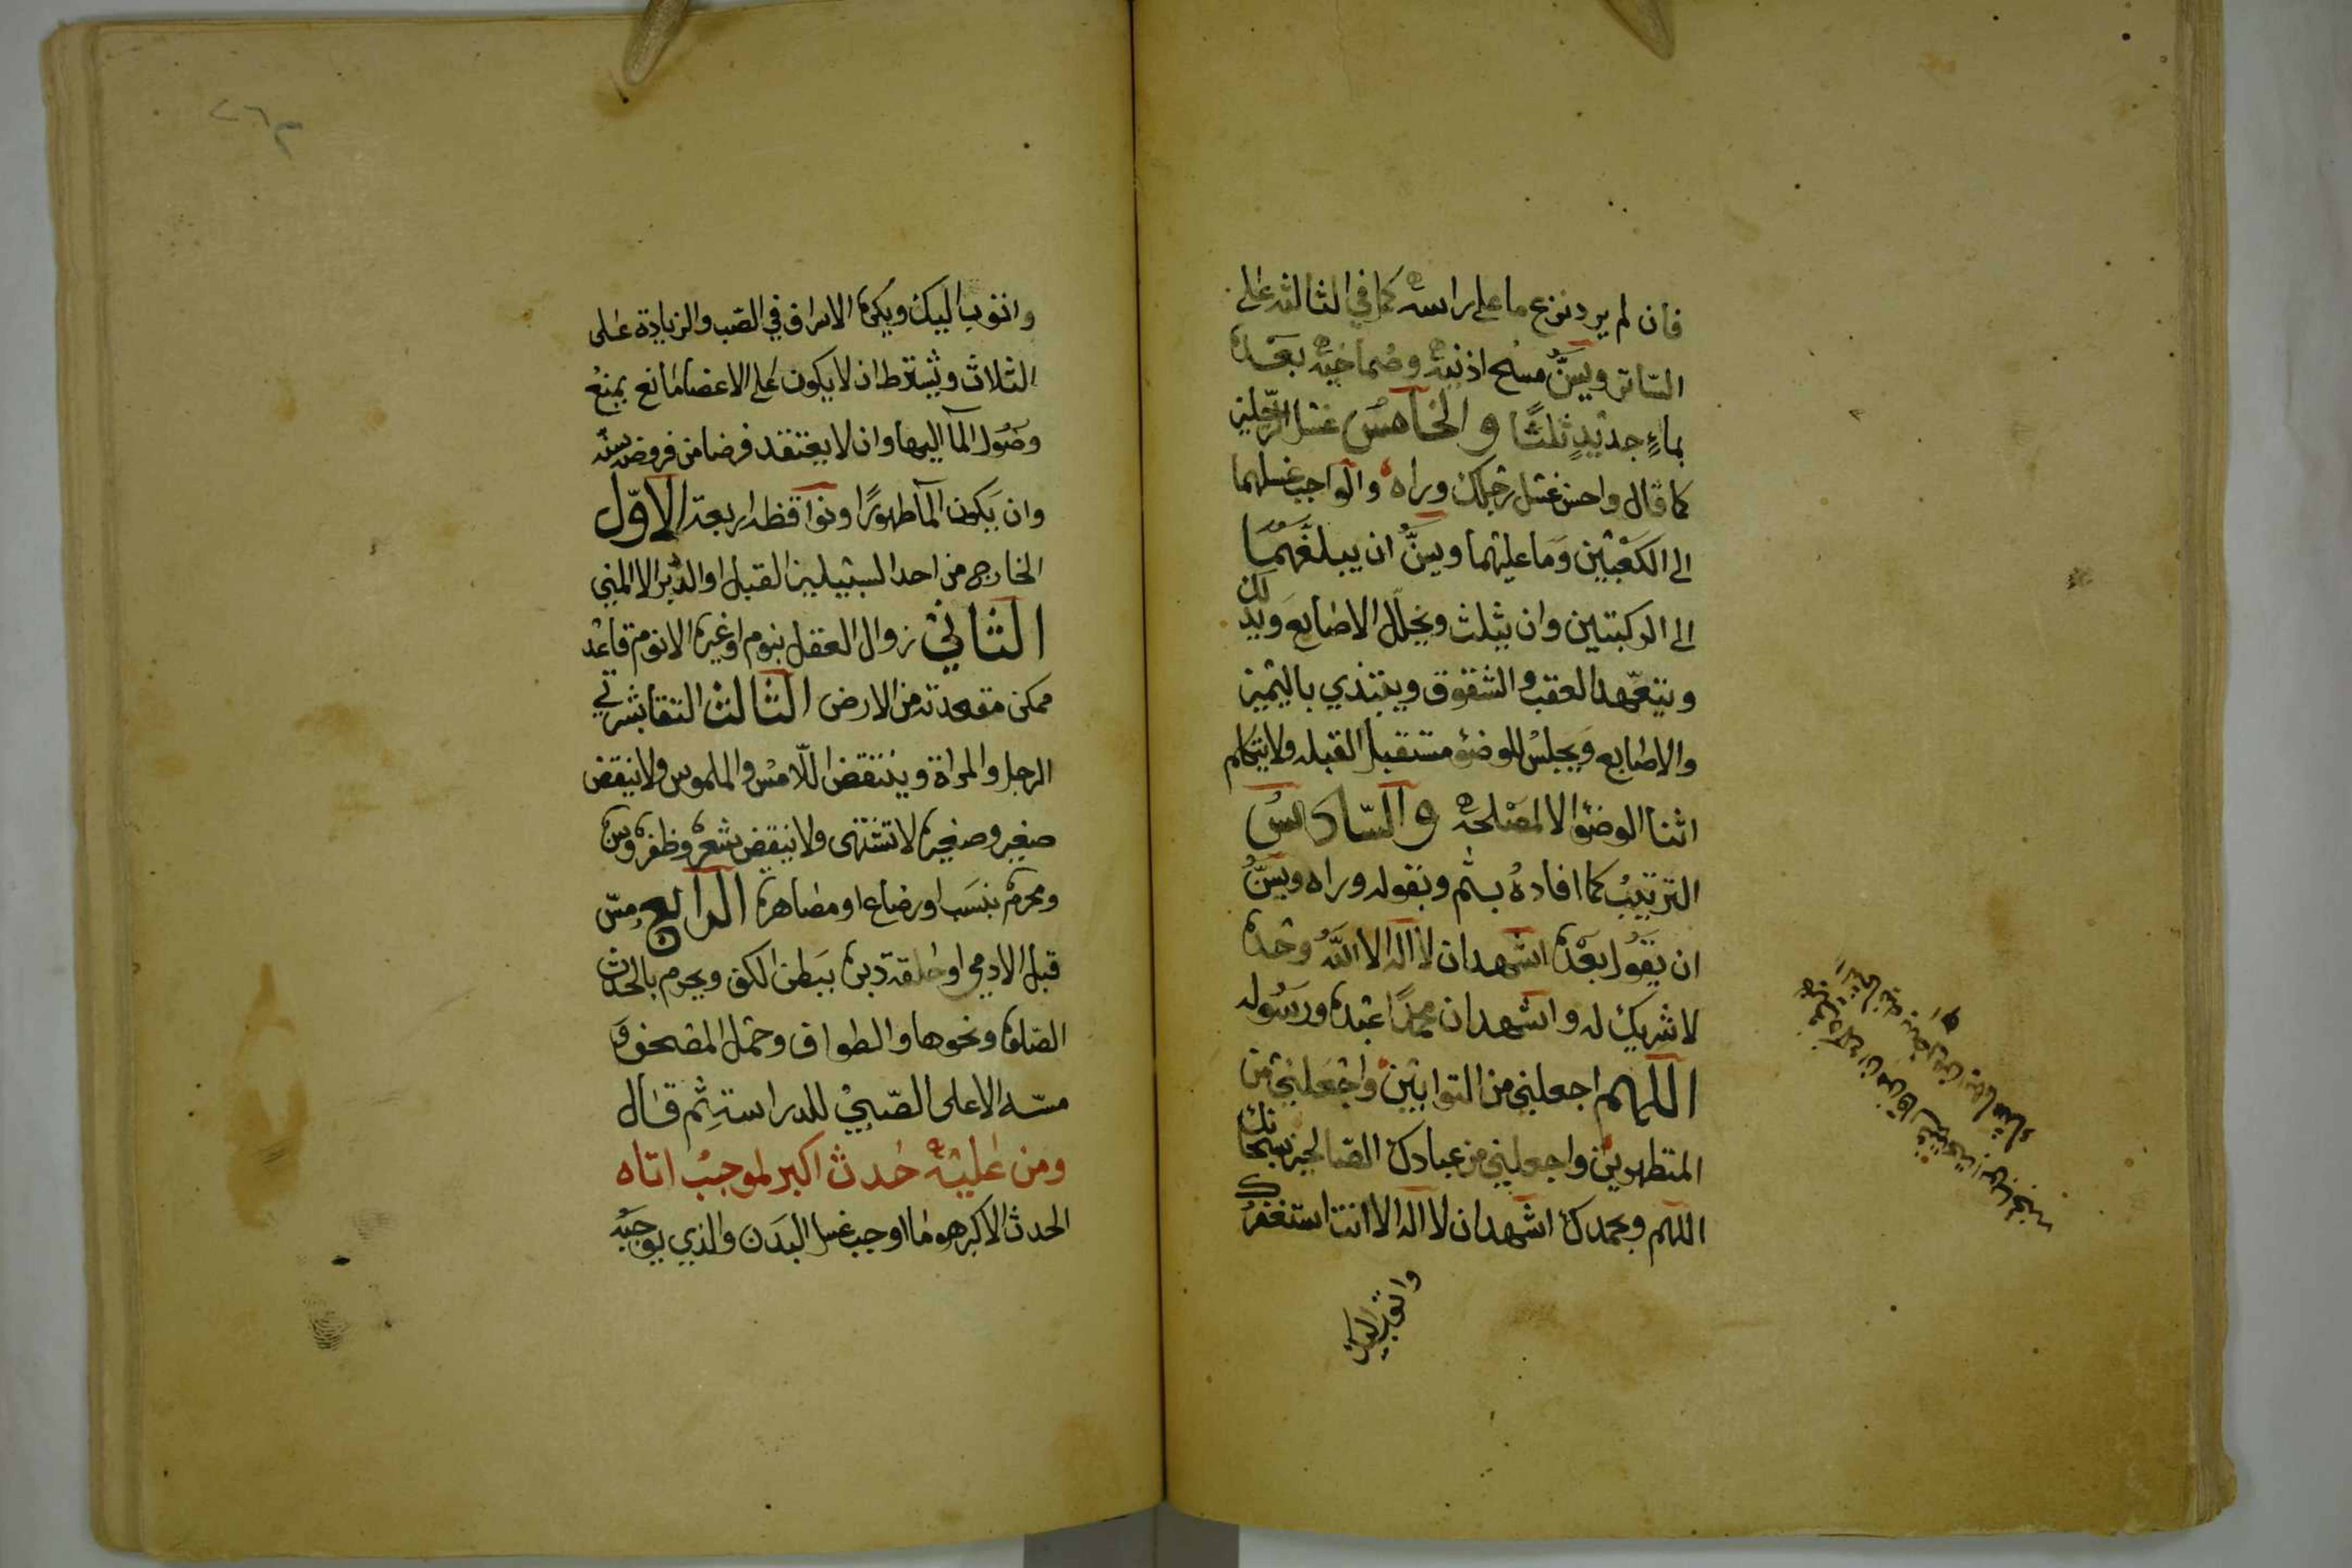 فان لم يرد نزع ما على راسه كما في الثالثه على
الساتر ويسن مسح اذنيه وصماخيه بعده
بماء جديد ثلثا والخامس غسل الرجلين
كما قال واحسن غسل رجلك وراه والواجب غسلهما
الى الكعبين وما عليهما ويسن ان يبلغهما
الى الركبتين وان يثلث ويخلل الاصابع ويدلك
ويتعهد العقب والشقوق ويبتدي باليمين
والاصابع ويجلس للوضؤ مستقبل القبله ولا يتكلم
اثنا الوضؤ الا لمصلحه والسادس
الترتيب كما افاده بثم وبقوله وراه ويسن
ان يقول بعده اشهد ان لا اله الا الله وحده
لا شريك له واشهد ان محمدا عبده ورسوله
اللهم اجعلني من التوابين واجعلني من
المتطهرين واجعلني من عبادك الصالحين سبحانك
اللهم وبحمدك اشهد ان لا اله الا انت استغفرك
واتوب اليك
واتوب اليك ويكره الاسراف في الصب والزيادة على
الثلاث ويشترط ان لا يكون على الاعضا مانع يمنع
وصول المآ اليها وان لا يعتقد فرضا من فروضه سنه
وان يكون المآ طهورا ونواقظه اربعة الاول
الخارج من احد السبيلين القبل او الدبر الا المني
الثاني زوال العقل بنوم او غيره الا نوم قاعد
ممكن مقعدته من الارض الثالث التقا بشرتي
الرجل والمراة وينتقض اللامس والملموس ولا ينقض
صغير وصغيره لا تشتهى ولا ينقض شعر وظفر وسن
ومحرم بنسب او رضاع او مصاهرة الرابع مس
قبل الادمي او حلقة دبره ببطن الكف ويحرم بالحدث
الصلوة ونحوها والطواف وحمل المصحف و
مسه الا على الصبي للدراسة ثم قال
ومن عليه حدث اكبر لموجب اتاه
الحدث الاكبر هو ما اوجب غسل البدن والذي يوجبه